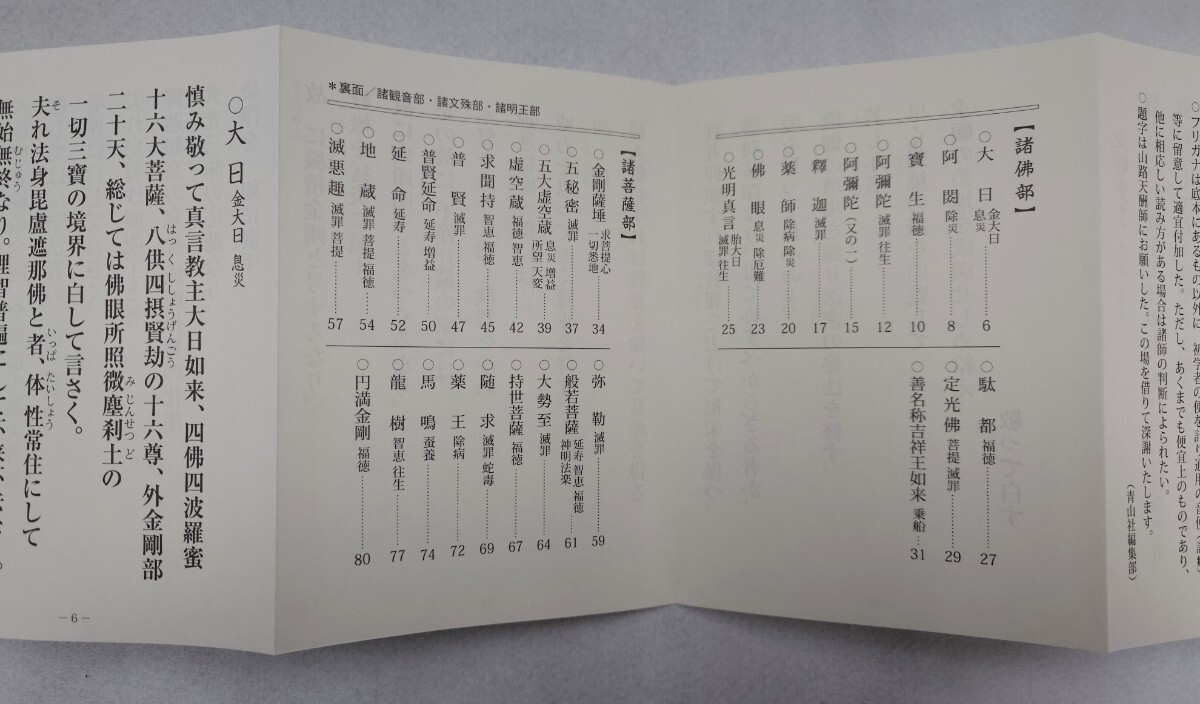 ○フリガナは底本にあるもの以外に、初学者の便を
等に留意して適宜付加した。ただし、あくまでも便宜上のものであり、
他に相応しい読み方がある場合は諸師の判断によられたい。
○題字は山路天酬師にお願いした。この場を借りて深謝いたします。
（青山社編集部）
【諸佛部】
○大日 金大日 息災……6
○阿閦 除災……8
○寶生 福徳……10
○阿彌陀 滅罪 往生……12
○阿彌陀（又の一）……15
○釋迦 滅罪……17
○薬師 除病 除災……20
○佛眼 息災 除厄難……23
○光明真言 胎大日 滅罪 往生……25
○駄都 福徳……27
○定光佛 菩提 滅罪……29
○善名称吉祥王如来 乗船……31
＊裏面／諸観音部・諸文殊部・諸明王部
【諸菩薩部】
○金剛薩埵 求菩提心 一切悉地……34
○五秘密 滅罪……37
○五大虚空蔵 息災 増益 所望 天変……39
○虚空蔵 福徳 智恵……42
○求聞持 智恵 福徳……45
○普賢 滅罪……47
○普賢延命 延寿 増益……50
○延命 延寿……52
○地蔵 滅罪 菩提 福徳……54
○滅悪趣 滅罪 菩提……57
○弥勒 滅罪……59
○般若菩薩 延寿 智恵 福徳 神明法楽……61
○大勢至 滅罪……64
○持世菩薩 福徳……67
○随求 滅罪 蛇毒……69
○薬王 除病……72
○馬鳴 蚕養……74
○龍樹 智恵 往生……77
○円満金剛 福徳……80
○大日 金大日 息災
慎み敬って真言教主大日如来、四佛四波羅蜜
十六大菩薩、八供四摂賢劫の十六尊、外金剛部
はっくししょうげんごう
二十天、総じては佛眼所照微塵刹土の
みじんせつど
一切三寶の境界に白して言さく。
夫れ法身毘盧遮那佛と者、体性常住にして
そ いっぱ たいしょう
無始無終なり。理智普遍にして
むじゅう
－6－